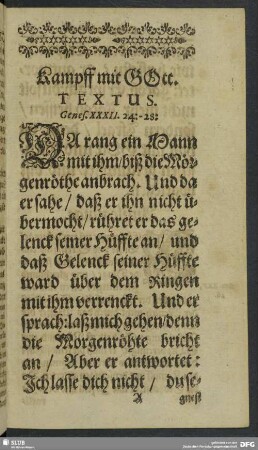 Kampff mit GOtt.
TEXTUS.
Genes. XXXII. 24:-28:
DA rang ein Mann
mit ihm/ biß die Mor-
genröthe anbrach. Und da
er sahe/ daß er ihn nicht ü-
bermocht/ rühret er das ge-
lenck seiner Hüffte an/ und
daß Gelenck seiner Hüffte
ward über dem Ringen
mit ihm verrenckt. Und er
sprach: laß mich gehen/ denn
die Morgenröhte bricht
an/ Aber er antwortet:
Ich lasse dich nicht/ du se-
A gnest
SLUB
DFG